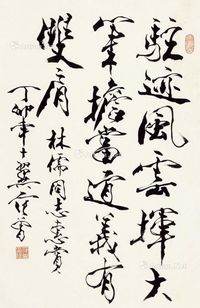 駐迹風雲揮大
筆擔當道義有
雙肩 林儒同志惠賞
丁卯年十翼范曾